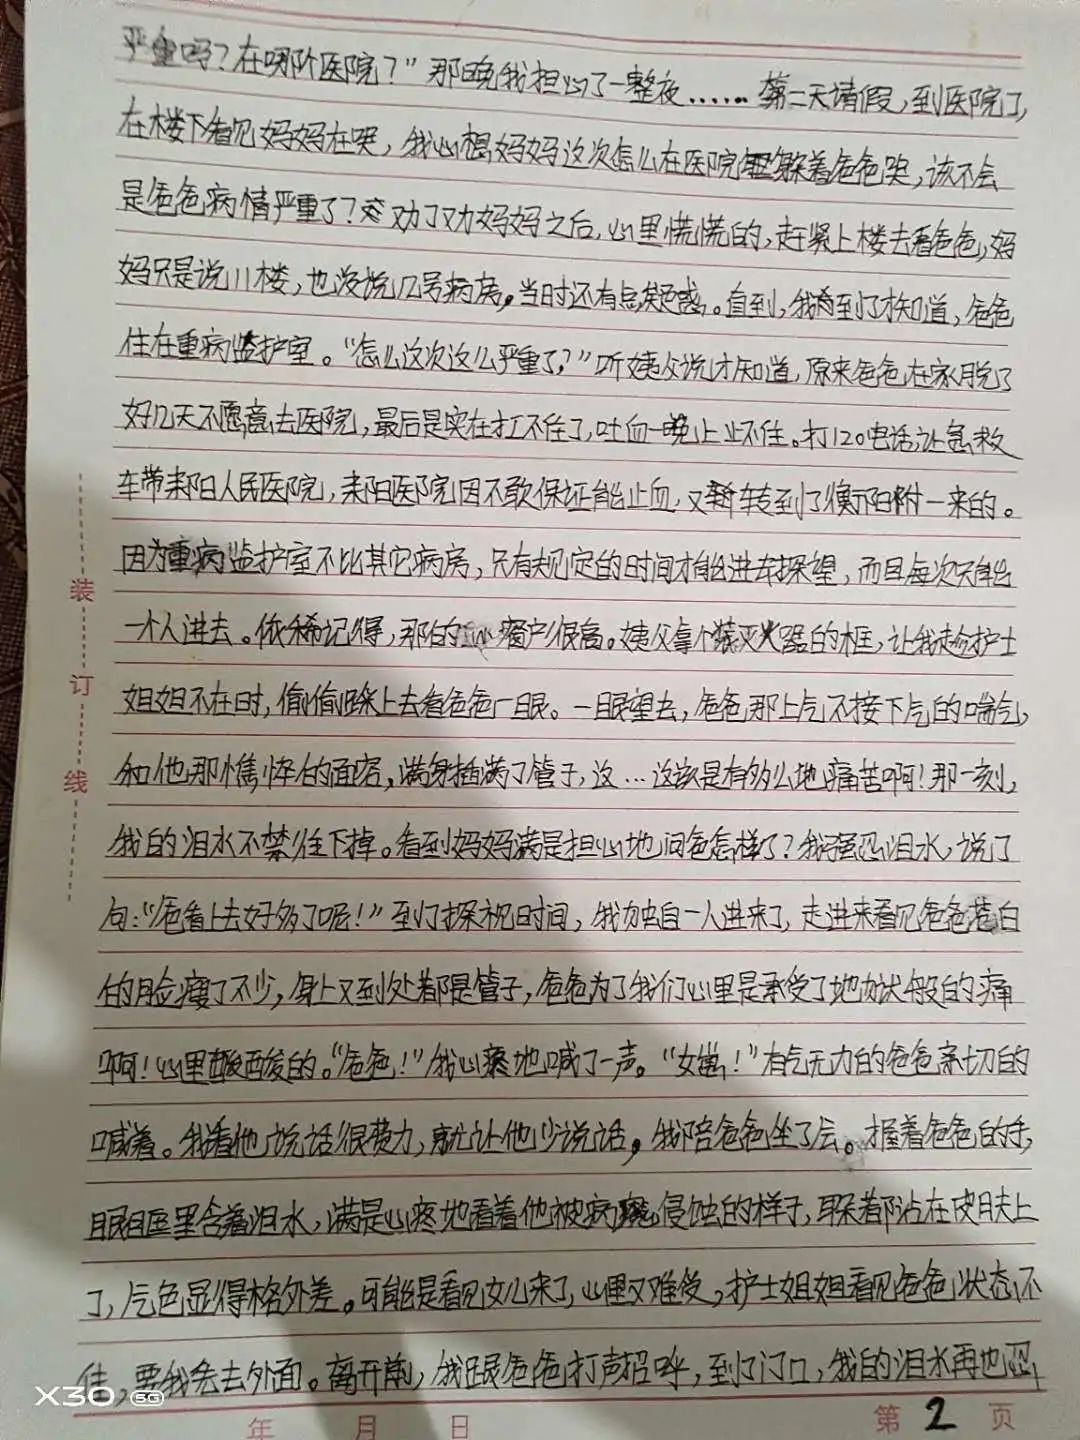 严重吗？在哪个医院？”那晚我担心了一整夜……第二天请假，到医院了，
在楼下看见妈妈在哭，我心想妈妈这次怎么在医院躲着爸爸哭，该不会
是爸爸病情严重了？劝了劝妈妈之后，心里慌慌的，赶紧上楼去看爸爸，妈
妈只是说11楼，也没说几号病房，当时还有点疑惑。直到，我到了才知道，爸爸
住在重病监护室。“怎么这次这么严重了？”听姨父说才知道，原来爸爸在家脱了
好几天不愿意去医院，最后是实在扛不住了，吐血一晚上止不住。打120电话让急救
车带耒阳人民医院，耒阳医院因不敢保证能止血，又转到了衡阳附一来的。
因为重病监护室不比其它病房，只有规定的时间才能进去探望，而且每次只能
一个人进去。依稀记得，那的窗户很高。姨父拿个装灭火器的框，让我趁护士
姐姐不在时，偷偷踩上去看爸爸一眼。一眼望去，爸爸那上气不接下气的喘气，
和他那憔悴的面容，满身插满了管子，这…这该是有多么地痛苦啊！那一刻，
我的泪水不禁往下掉。看到妈妈满是担心地问爸怎样了？我强忍泪水，说了
句：“爸看上去好多了呢！”到了探视时间，我独自一人进来了，走进来看见爸爸苍白
的脸瘦了不少，身上又到处都是管子，爸爸为了我们心里是承受了地狱般的痛
啊！心里酸酸的。“爸爸！”我心疼地喊了一声。“女崽！”有气无力的爸爸亲切的
喊着。我看他说话很费力，就让他少说话，我陪爸爸坐了会。握着爸爸的手，
眼眶里含着泪水，满是心疼地看着他被病魔侵蚀的样子，都沾在皮肤上
了，气色显得格外差。可能是看见女儿来了，心里又难受，护士姐姐看见爸爸状态不
佳，要我先去外面。离开前，我跟爸爸打声招呼，到了门口，我的泪水再也忍
装
订
线
X30 5G
年 月 日
第 2 页